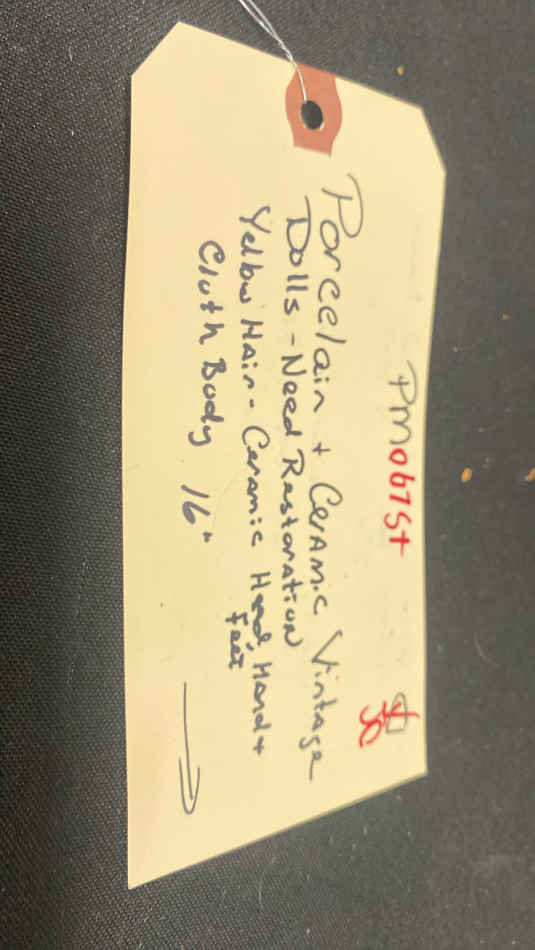 PM0675t
Porcelain + Ceramic Vintage
Dolls - Need Restoration
Yellow Hair - Ceramic Head, Hand +
Feet
Cloth Body 16"